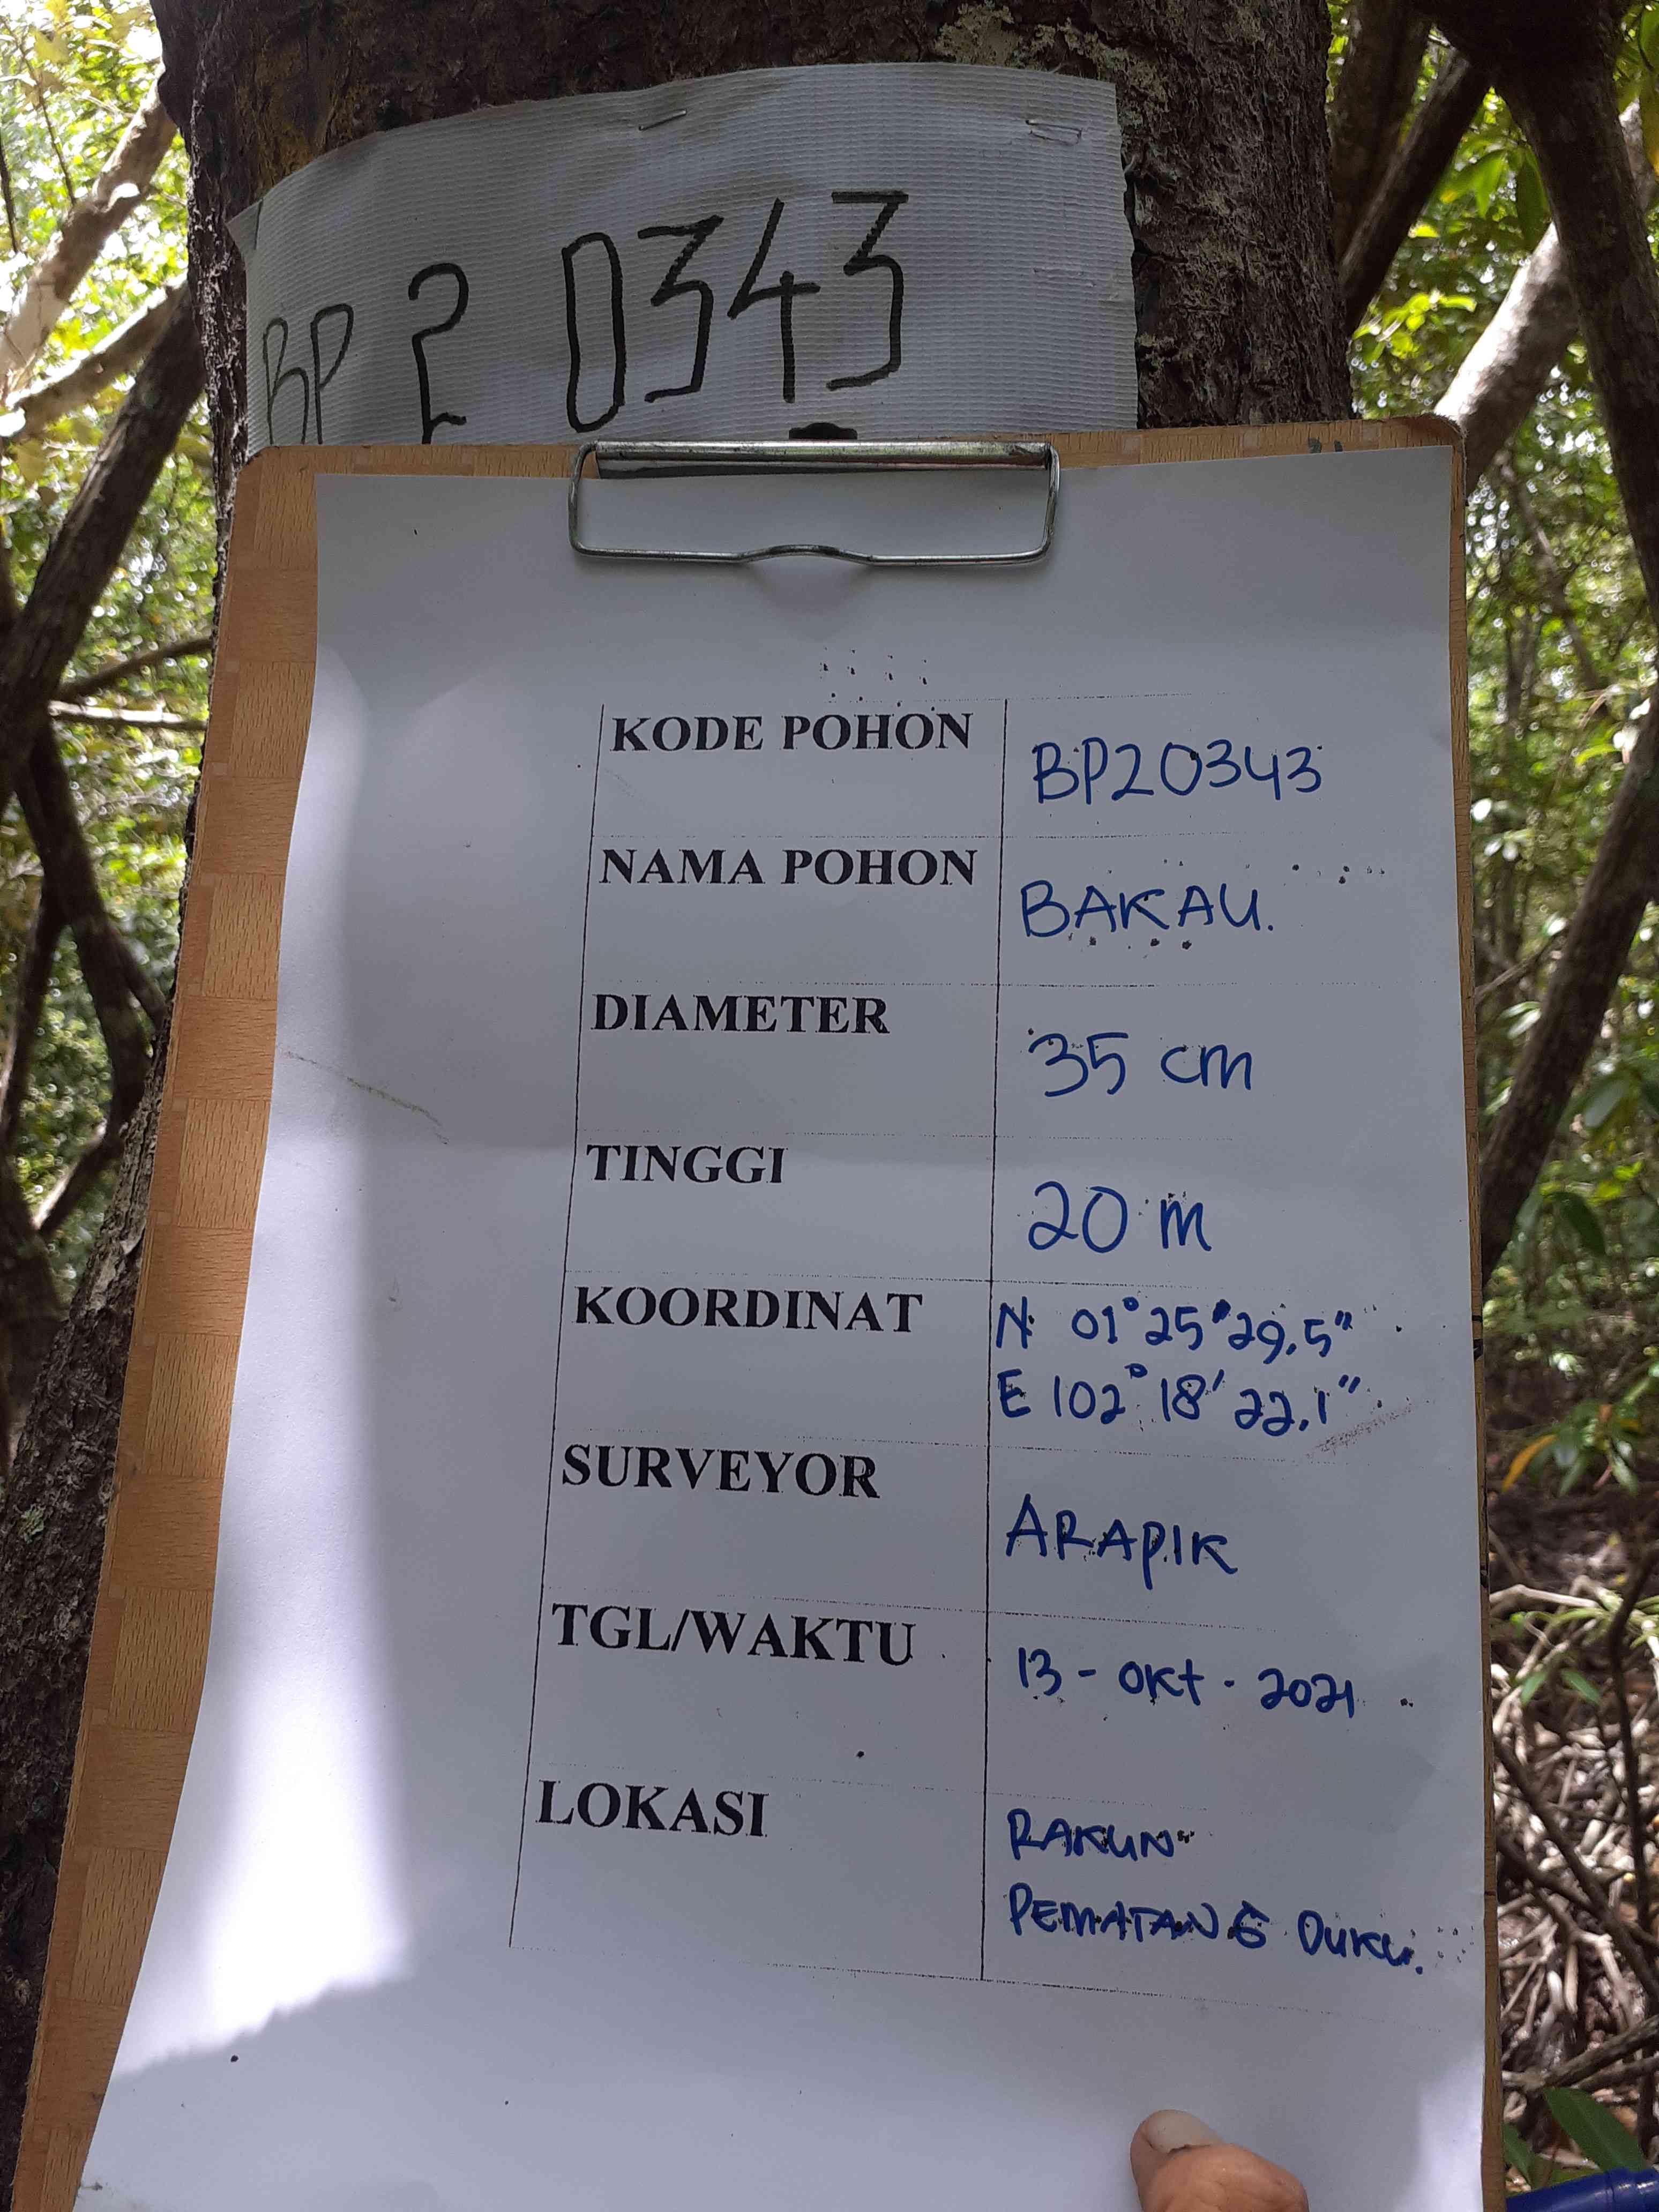 BP 2 0343
KODE POHON BP20343
NAMA POHON BAKAU.
DIAMETER 35 cm
TINGGI 20 m
KOORDINAT N 01° 25' 29,5"
E 102° 18' 22,1"
SURVEYOR ARAPIK
TGL/WAKTU 13 - OKt - 2021
LOKASI RAKUN
PEMATANG DUKU.